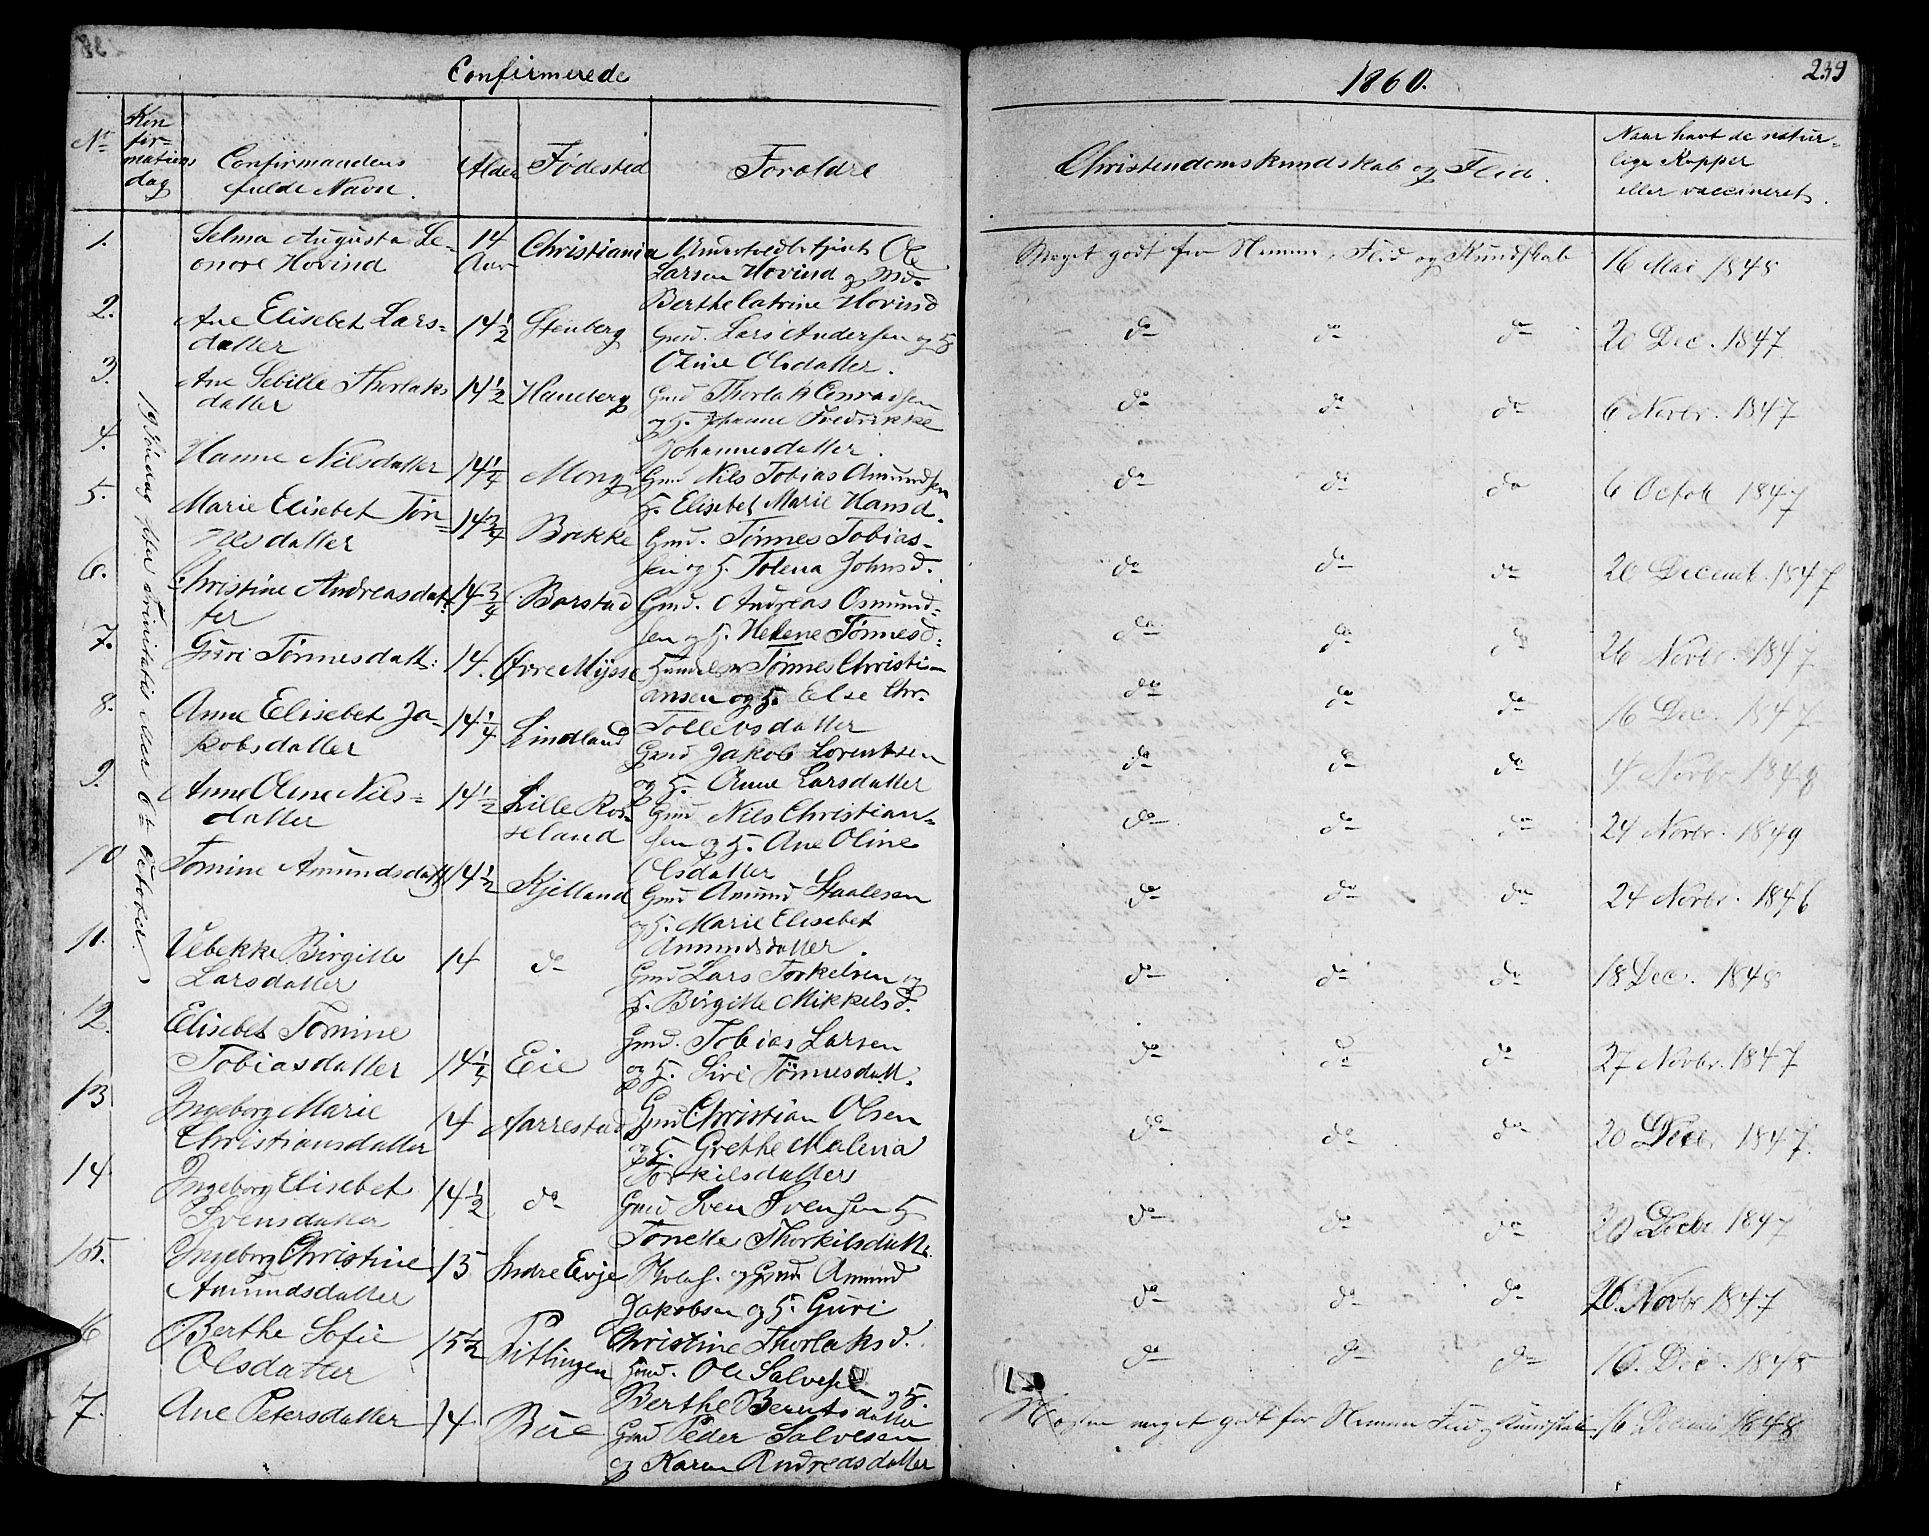 Confirmerede
1860.
239
Nt
Kon
fir=
mations
dag
Confirmandens
fulde Navn.
Alder
Fødested
Forældre
Christendomskundskab og Flid.
Naar havt de natur-
lige Kopper
eller vaccineret.
19 Søndag efter Trinitatis den October.
1.
Selma Augusta Le-
onore Hovind
14
Aar
Christiania
Ole
Larsen Hovind og Md.
Berthe Catrine Hovind
Meget godt for Nemme, Flid og Kundskab
16 Mai 1848
2.
Ane Elisebet Lars-
datter
14 1/2
Stenberg
Gmd. Lars Andersen og H
Oline Olsdatter.
do do do
20 Dec. 1847
3.
Ane Sebille Thorlaks
datter
14 1/2
Haneberg
Gmd Thorlak Conradsen
og H. Johanne Fredrikke
Johannesdatter.
do do do
6 Novbr. 1847
4.
Hanne Nilsdatter
14 1/4
Mong
Gmd Nils Tobias Amundsen
H. Elisebet Marie Hansd.
do do do
6 Octob 1847
5.
Marie Elisebet Tøn-
nesdatter
14 3/4
Brekke
Gmd. Tønnes Tobias-
sen og H. Tolena Johnsd.
do do do
20 Decemb. 1847
6.
Christine Andreasdat-
ter
14 3/4
Barstad
Gmd. Andreas Osmund-
sen og H. Helene Tønnesd.
do do do
26 Novbr. 1847
7.
Guri Tønnesdatt:
14.
Øvre Mysse
Tønnes Christi-
ansen og H. Else Chr.
Tollevsdatter
do do do
16 Dec. 1847
8.
Anne Elisebet Ja-
kobsdatter
14 1/4
Lindland
Gmd Jakob Lorentsen
og H. Anne Larsdatter
do do do
4 Novbr 1848
9.
Anne Oline Nils-
datter
14 1/2
Lille Ros-
seland
Gmd Nils Christian-
sen og H. Ane Oline
Olsdatter
do do do
24 Novbr. 1849
10
Tomine Amundsdatt
14 1/2
Kjelland
Gmd Amund Staalesen
og H. Marie Elisebet
Amundsdatter.
do do do
24 Novbr. 1846
11.
Vebekke Birgitte
Larsdatter
14
do
Gmd Lars Torkelsen og
H. Birgitte Mikkelsd.
do do do
18 Dec. 1848
12.
Elisebet Tomine
Tobiasdatter
14 1/4
Eie
Gmd. Tobias Larsen
og H. Siri Tönnesdatt.
do do do
27 Novbr. 1847
13
Ingeborg Marie
Christiansdatter
14
Aarrestad
Gmd: Christian Olsen
og H. Grethe Malena
Torkilsdatter
do do do
20 Decbr 1847.
14
Ingeborg Elisebet
Svensdatter
14 1/2
do
Gmd Sven Svensen H
Tonette Thorkilsdatt.
do do do
20 Decbr 1847
15.
Ingeborg Christine
Amundsdatter
15
Indre Eeje
og Gmd Amund
Jakobsen og H. Guri
Christine Thorlaksd.
do do do
26 Novbr 1847
16
Berthe Sofie
Olsdatter
15 1/2
Pittingen
Gmd. Ole Salvesen
og H.
Berthe Berntsdatter
do do do
16. Dec. 1848
17.
Ane Petersdatter
14
Bøe
Gmd Peder Salvesen
og Karen Andreasdatter
Nogen meget godt for Nemme Flid og Kundskab.
16 1848